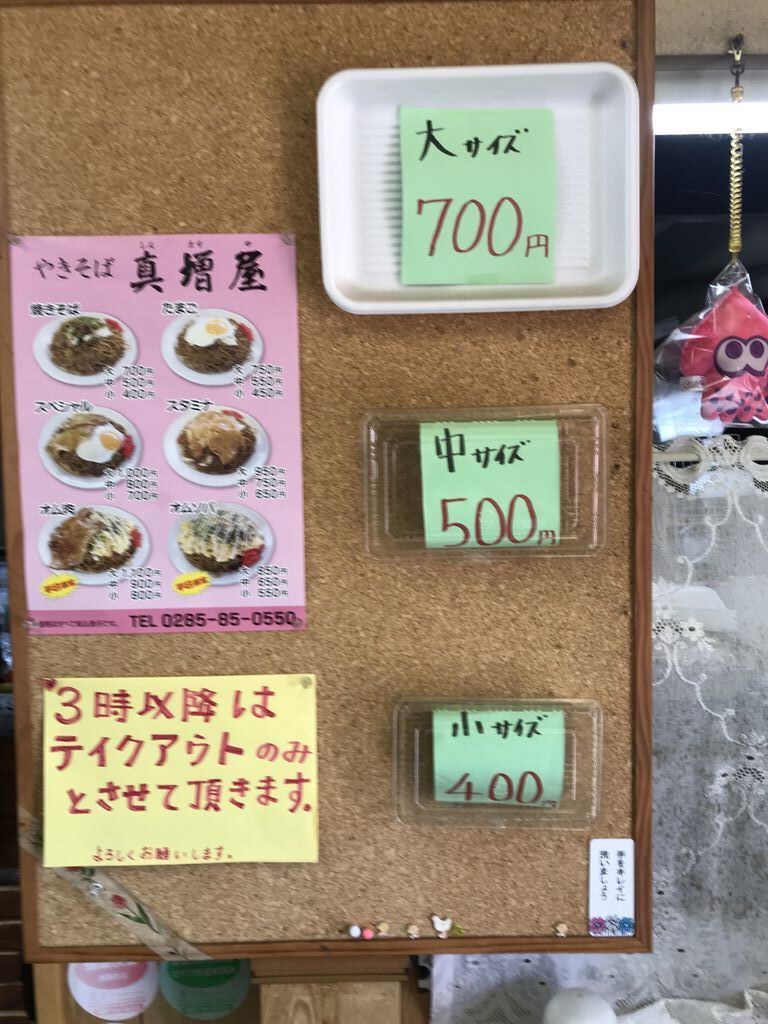 大サイズ
700円
しん ます や
やきそば 真増屋
焼きそば
大 700円
中 500円
小 400円
たまご
大 750円
中 550円
小 450円
スペシャル
大 1,000円
中 800円
小 700円
スタミナ
大 950円
中 750円
小 650円
オム肉
大 1,100円
中 900円
小 800円
オムソバ
大 850円
中 650円
小 550円
TEL 0285-85-0550
中サイズ
500円
3時以降は
テイクアウトのみ
とさせて頂きます。
よろしくお願いします。
小サイズ
400円
手をキレイに
洗いましょう